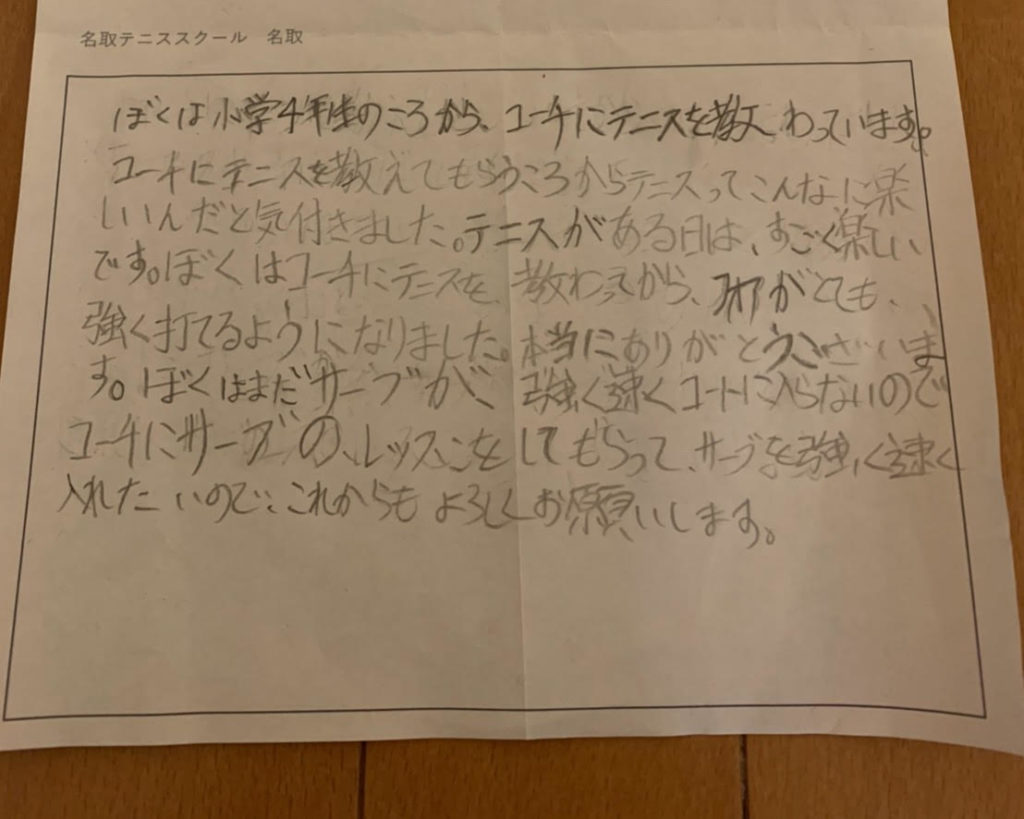 名取テニススクール 名取
ぼくは小学4年生のころから、コーチにテニスを教わっています。
コーチにテニスを教えてもらうころからテニスってこんなに楽
しいんだと気付きました。テニスがある日は、すごく楽しい
です。ぼくはコーチにテニスを、教わってから、がとても、
強く打てるようになりました。本当にありがとうございま
す。ぼくはまだサーブが、強く速くコートに入らないので
コーチにサーブの、レッスンをしてもらって、サーブを強く速く
入れたいので、これからもよろしくお願いします。